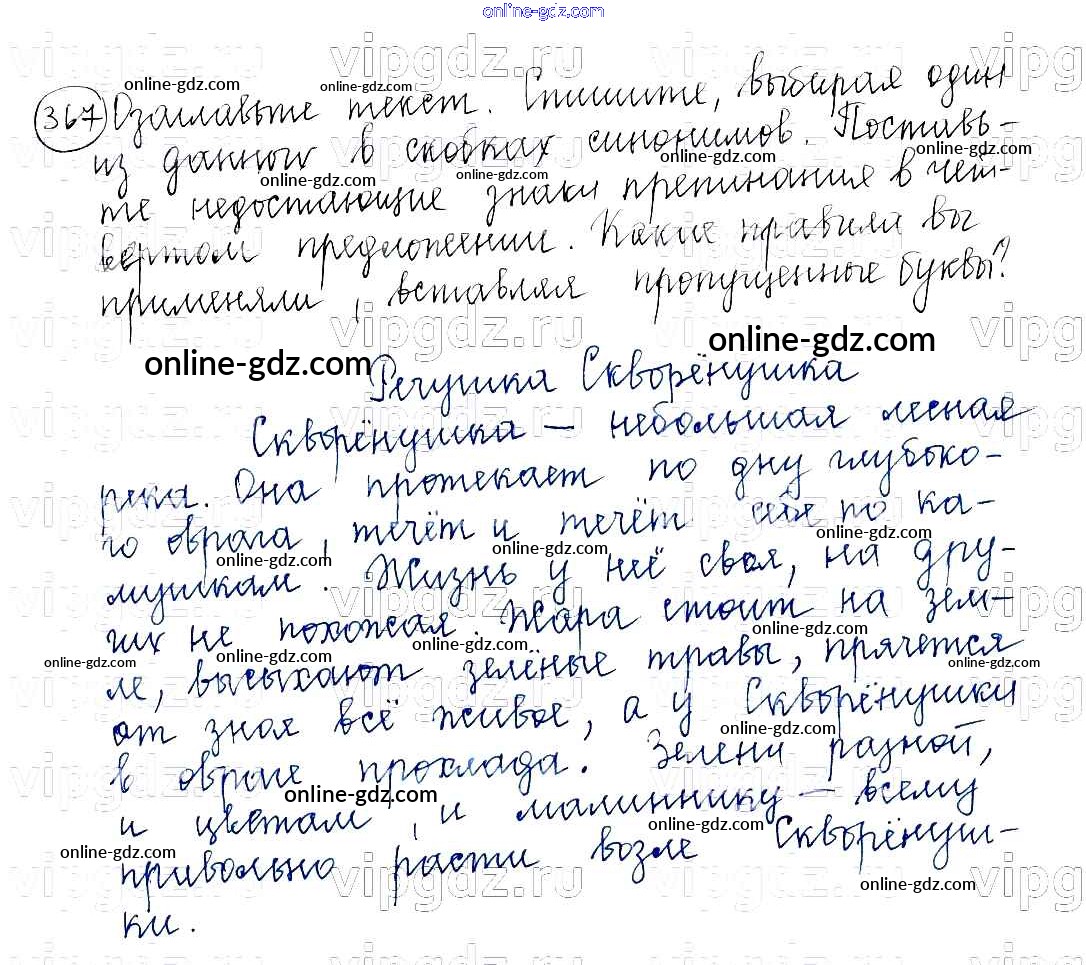 online-gdz.com
367 Озаглавьте текст. Спишите, выбирая один
из данных в скобках синонимов. Поставь-
те недостающие знаки препинания в чет-
вертом предложении. Какие правила вы
применяли, вставляя пропущенные буквы?
Речушка Скворёнушка
Скворёнушка – небольшая лесная
река. Она протекает по дну глубоко-
го оврага, течёт и течёт себе по ка-
мушкам. Жизнь у неё своя, на дру-
гих не похожая. Жара стоит на зем-
ле, высыхают зелёные травы, прячется
от зноя всё живое, а у Скворёнушки
в овраге прохлада. Зелени разной,
и цветам, и малиннику – всему
привольно расти возле Скворёнуш-
ки.